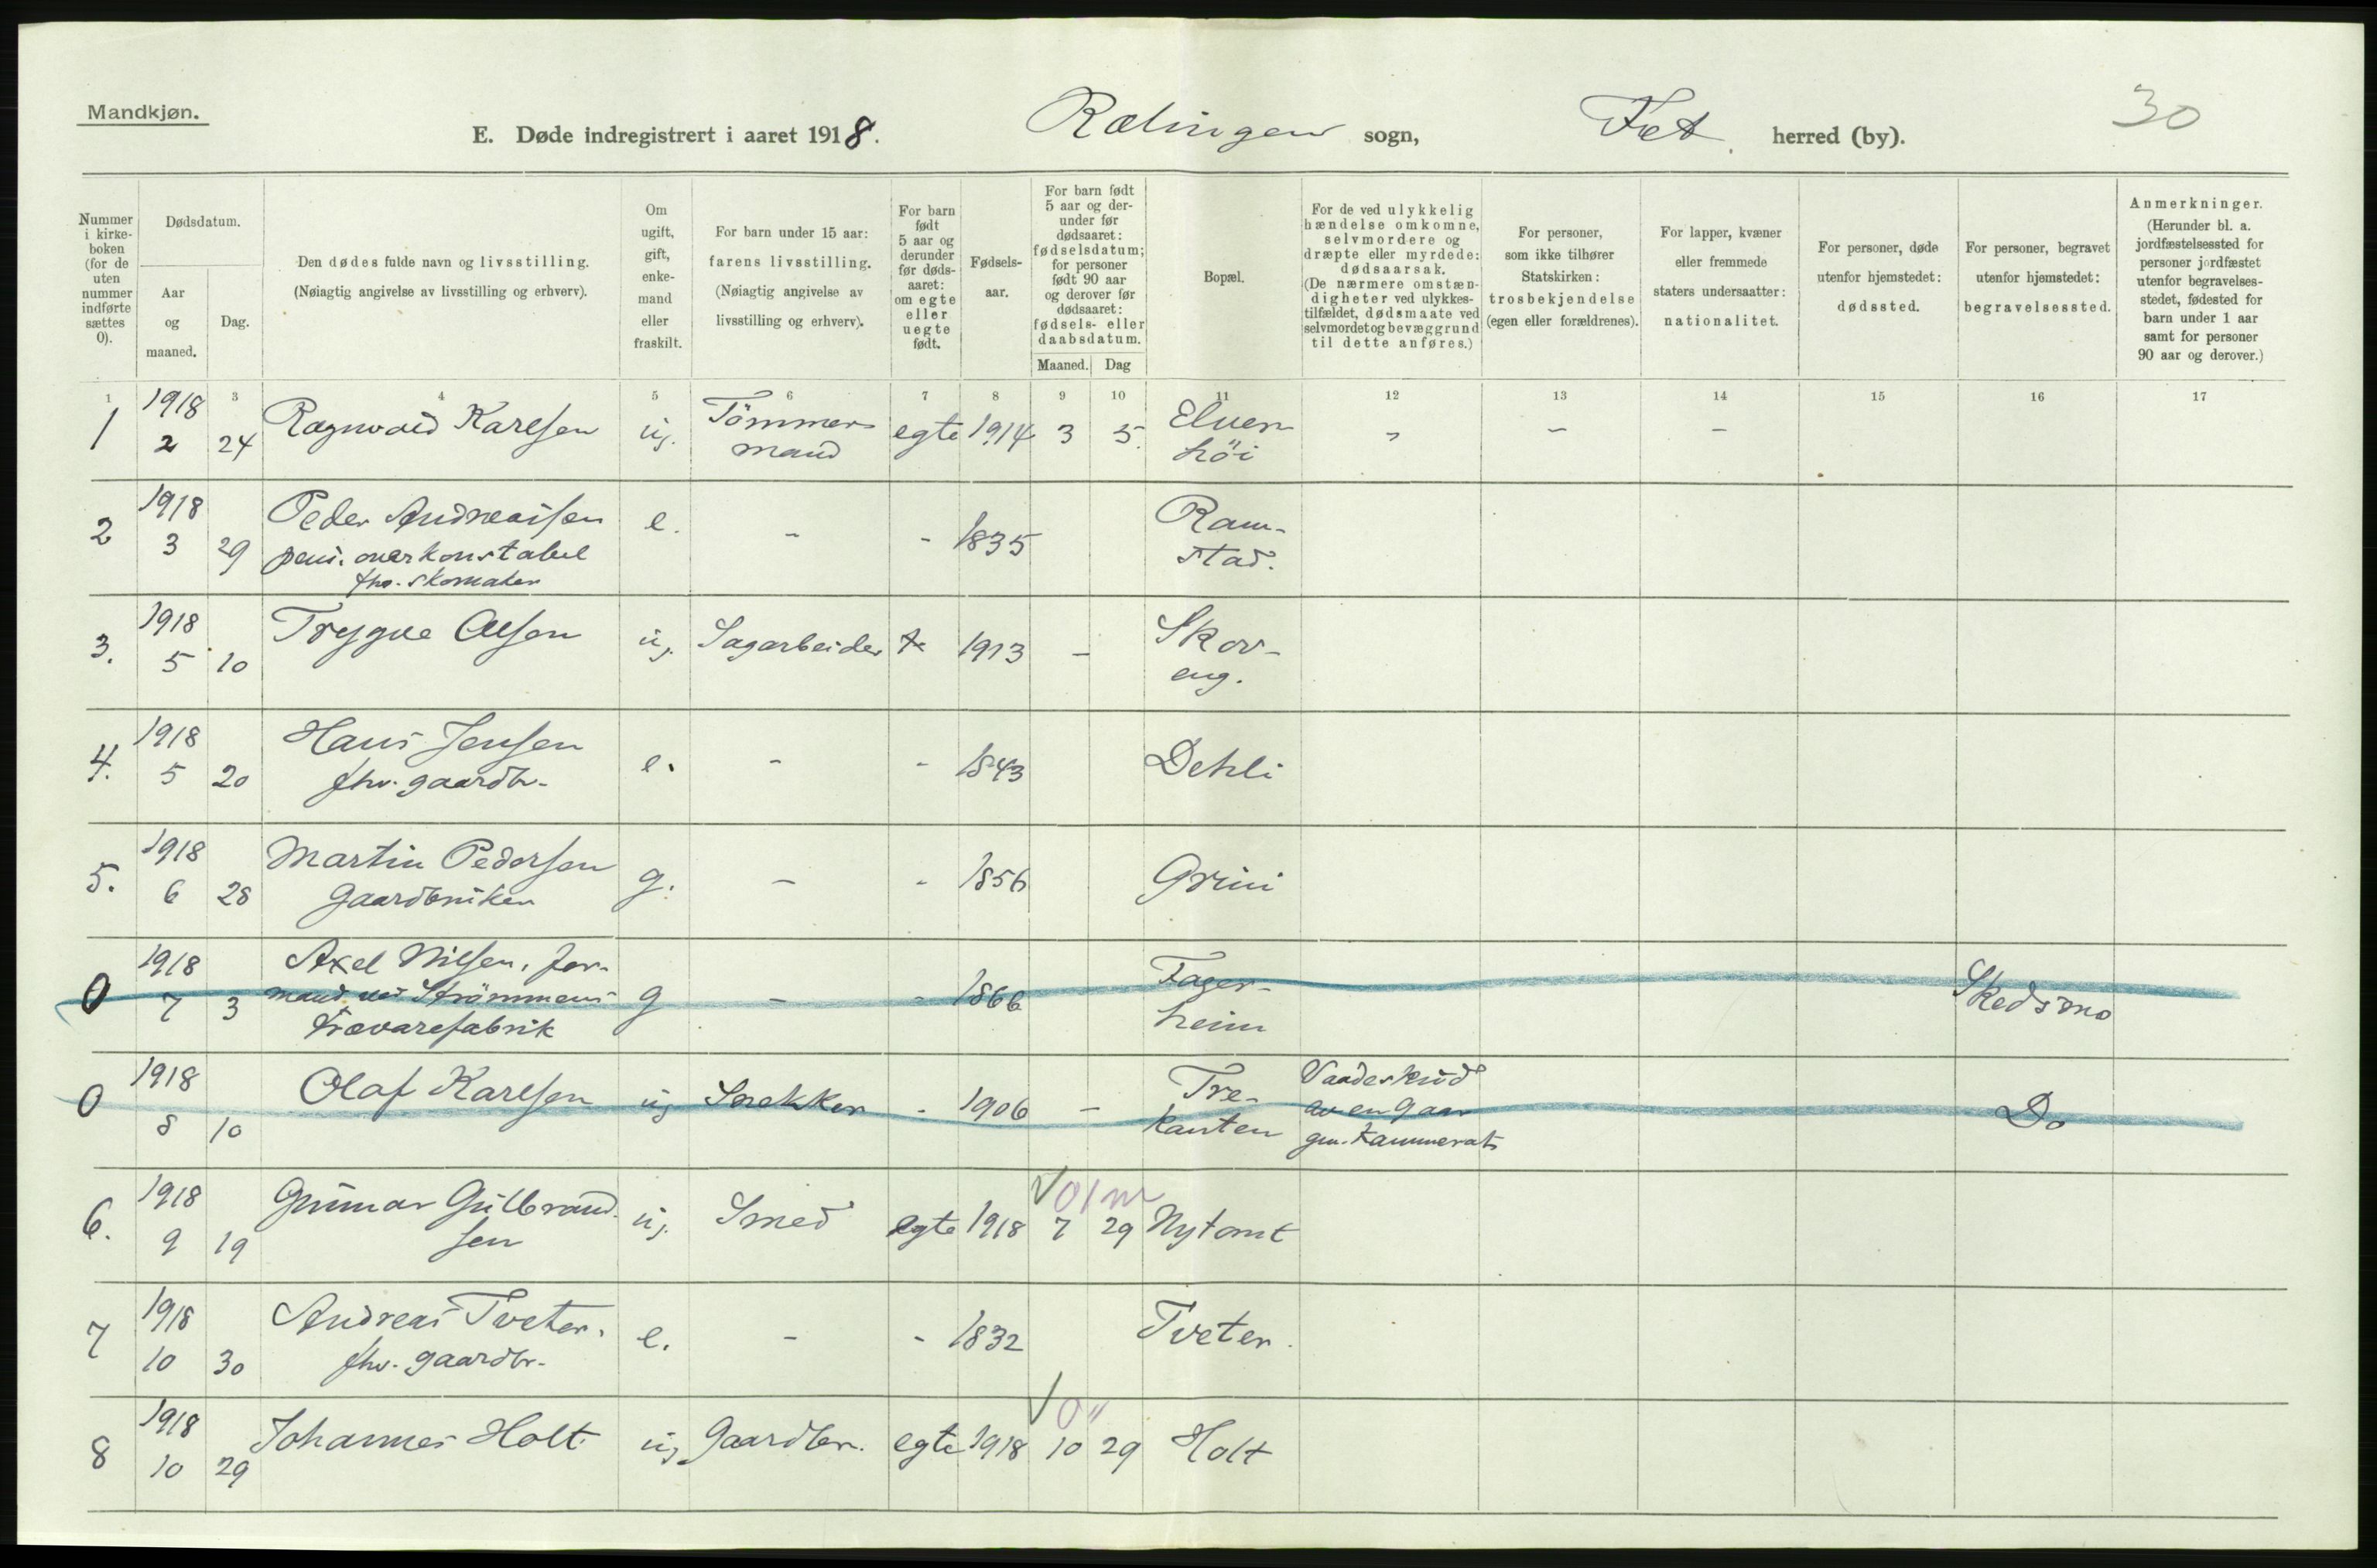 Mandkjøn.
E. Døde indregistrert i aaret 1918. Rælingen sogn, Fet herred (by). 30
Nummer i kirke-boken (for de uten nummer indførte sættes 0).
Dødsdatum.
Aar og maaned.
Dag.
Den dødes fulde navn og livsstilling.
(Nøiagtig angivelse av livsstilling og erhverv).
Om ugift, gift, enke-mand eller fraskilt.
For barn under 15 aar: farens livsstilling. (Nøiagtig angivelse av livsstilling og erhverv).
For barn født 5 aar og derunder før døds-aaret: om egte eller uegte født.
Fødsels-aar.
For barn født 5 aar og der-under før dødsaaret: fødselsdatum; for personer født 90 aar og derover før dødsaaret: fødsels- eller daabsdatum.
Maaned. Dag
Bopæl.
For de ved ulykkelig hændelse omkomne, selvmordere og dræpte eller myrdede: dødsaarsak. (De nærmere omstæn-digheter ved ulykkes-tilfældet, dødsmaate ved selvmordet og bevæggrund til dette anføres.)
For personer, som ikke tilhører Statskirken: trosbekjendelse (egen eller forældrenes).
For lapper, kvæner eller fremmede staters undersaatter: nationalitet.
For personer, døde utenfor hjemstedet: dødssted.
For personer, begravet utenfor hjemstedet: begravelsessted.
Anmerkninger.
(Herunder bl. a. jordfæstelsessted for personer jordfæstet utenfor begravelses-stedet, fødested for barn under 1 aar samt for personer 90 aar og derover.)
1 3 4 5 6 7 8 9 10 11 12 13 14 15 16 17
1 1918 2 24 Ragnvald Karlsen ug. Tömmermand egte 1914 3 5. Elvenhöi - - -
2 1918 3 29 Peder Andreassen pens. overkonstabel fhv. skomaker e. - - 1835 Ramstad.
3. 1918 5 10 Trygve Olsen ug. Sagarbeider 1913 - Skoveng.
4. 1918 5 20 Hans Jensen fhv. gaardbr. e. - - 1843 Dehli
5. 1918 6 28 Martin Pedersen Gaardbruker g. - - 1856 Grini
0 1918 7 3 Axel Nilsen, formand ved Strömmens Trævarefabrik g - - 1866 Fagerheim Skedsmo
0 1918 8 10 Olaf Karlsen ug Snekker - 1906 - Trekanten Vaadeskud av en gam kammerat Do
6. 1918 9 19 Gunnar Gulbrandsen ug. Smed egte 1918 7 29 Nytomt
7 1918 10 30 Andreas Tveter. fhv. gaardbr. e. - - 1832 Tveter.
8 1918 10 29 Johannes Holt ug Gaardbr. egte 1918 10 29 Holt